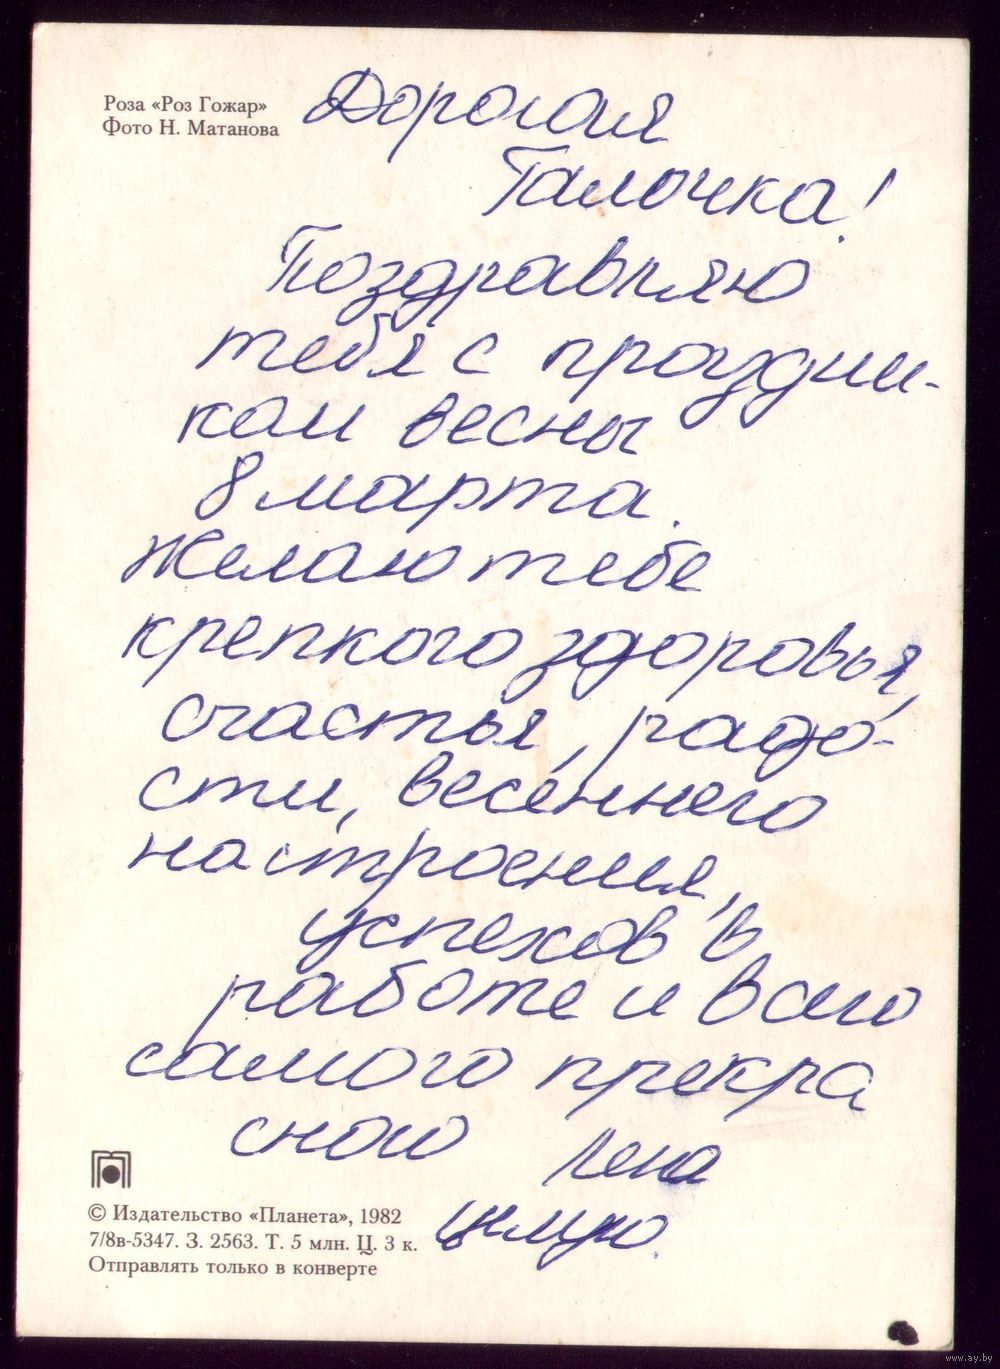 Роза «Роз Гожар»
Фото Н. Матанова
Дорогая
Галочка!
Поздравляю
тебя с праздни-
ком весны
8 марта.
Желаю тебе
крепкого здоровья,
счастья, радо-
сти, весеннего
настроения,
успехов в
работе и всего
самого прекра
сного Лена
целую.
© Издательство «Планета», 1982
7/8в-5347. З. 2563. Т. 5 млн. Ц. 3 к.
Отправлять только в конверте
www.ay.by